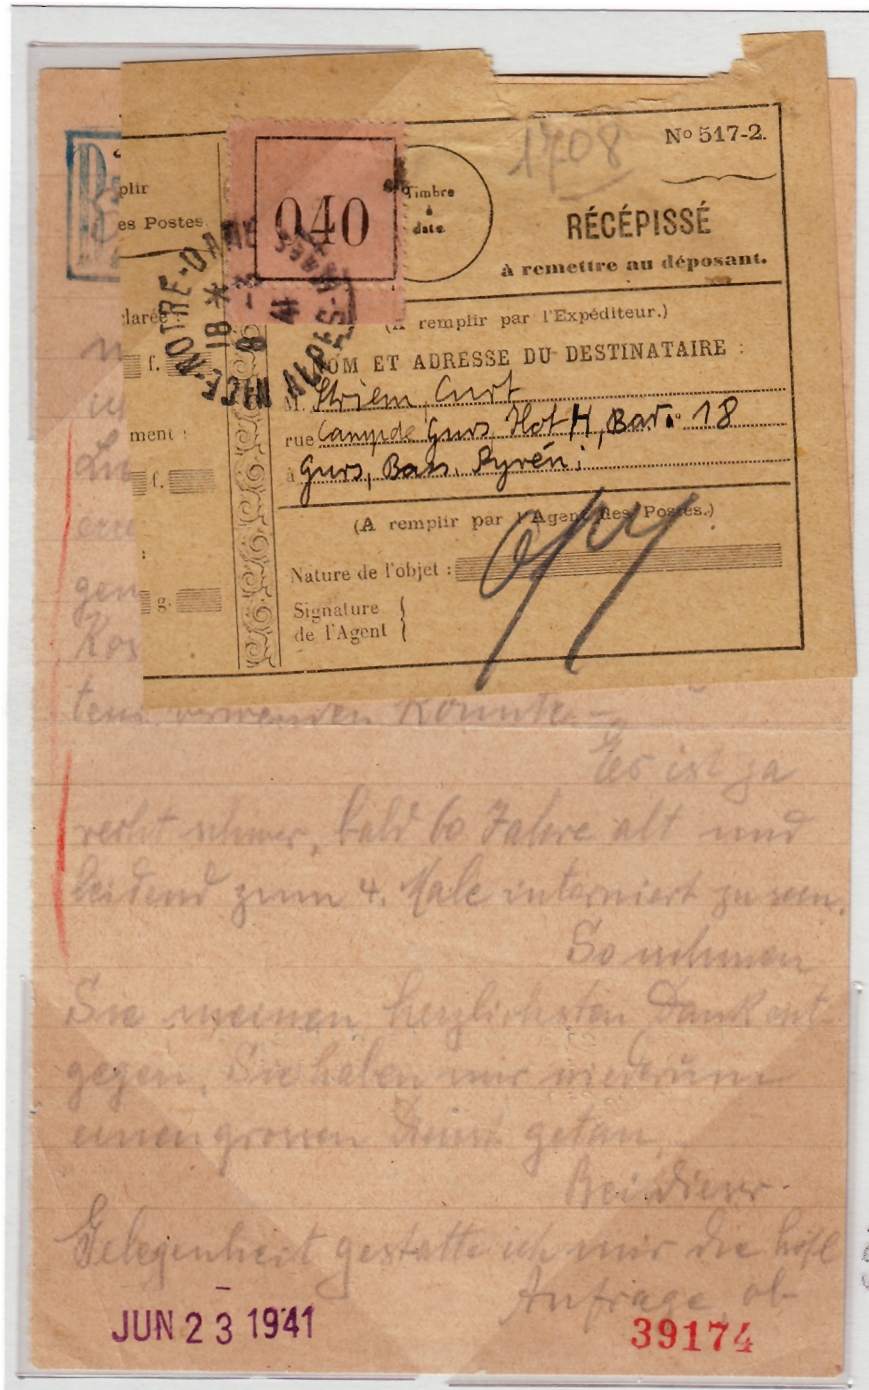 1708
No 517-2.
plir
es Postes
040
Timbre
à
date.
RÉCÉPISSÉ
à remettre au déposant.
NICE-NOTRE-DAME
18 * 8 -3 41
ALPES-MARITIMES
clarée :
f.
(A remplir par l'Expéditeur.)
NOM ET ADRESSE DU DESTINATAIRE :
M. Striem, Curt
ment :
rue Camp de Gurs, Ilot H, Bar. 18
f.
à Gurs, Bass. Pyrén.
(A remplir par l'Agent des Postes.)
:
Nature de l'objet :
g.
Signature
de l'Agent
verwenden könnte.-
Es ist ja
recht schwer, bald 60 Jahre alt und
leidend zum 4. Male interniert zu sein.
So nehmen
Sie meinen herzlichsten Dank ent-
gegen. Sie haben mir wiederum
einen grossen Dienst getan.
Bei dieser
Gelegenheit gestatte ich mir die höfl
Anfrage, ob
JUN 23 1941
39174